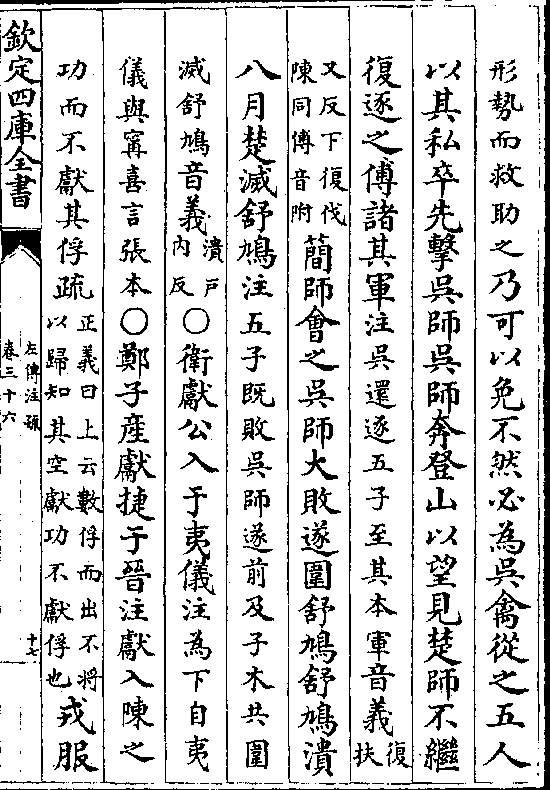 形勢而救助之乃可以免不然必為吳禽從之五人
以其私卒先擊吳師吳師奔登山以望見楚師不繼
復逐之傅諸其軍注吳還逐五子至其本軍音義復扶
又反下復伐
陳同傅音附
簡師會之吳師大敗遂圍舒鳩舒鳩潰
八月楚滅舒鳩注五子既敗吳師遂前及子木共圍
滅舒鳩音義潰戸
內反
〇衛獻公入于夷儀注為下自夷
儀與甯喜言張本〇鄭子產獻捷于晉注獻入陳之
功而不獻其俘疏正義曰上云數俘而出不將
以歸知其空獻功不獻俘也
戎服
欽定四庫全書
左傳注疏
卷三十六
十七